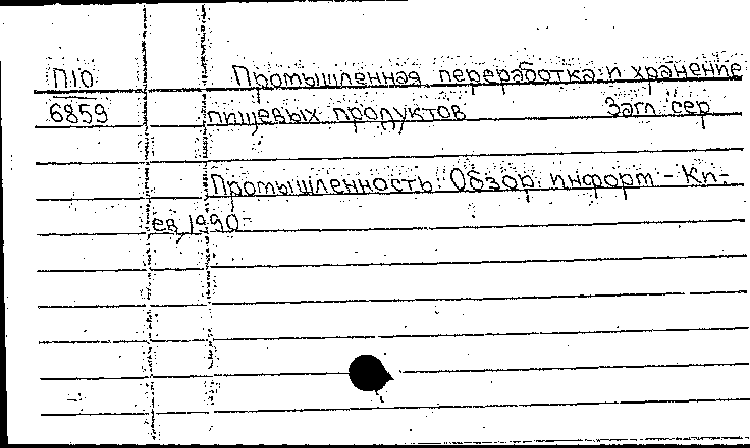 П10 Промышленная переработка и хранение
6859 пищевых продуктов Загл. сер.
Промышленность: Обзор. информ. - Ки-
ев, 1990-